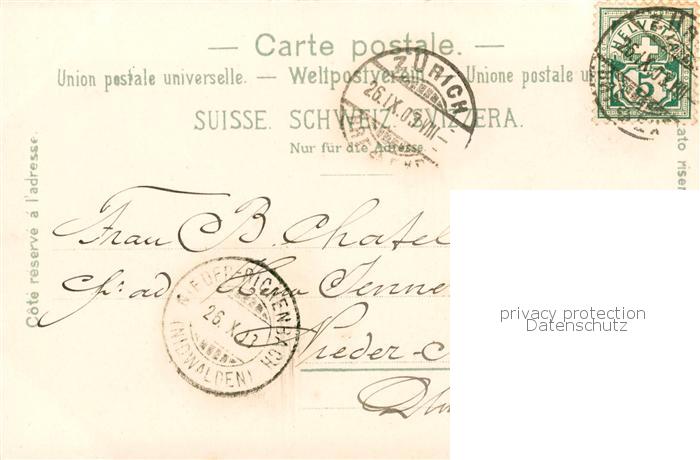 Carte postale.
Union postale universelle. — Weltpostverein — Unione postale u
SUISSE. SCHWEIZ. SVIZZERA.
Nur für die Adresse.
Côté réservé à l'adresse.
ato riser
HELVETIA
5
ZÜRICH
26.IX.0 VIII—
Frau B. Chatel
p. ad. Jenne
Nieder-
NIEDERRICKENBACH
26. X
(NIDWALDEN)
privacy protection
Datenschutz